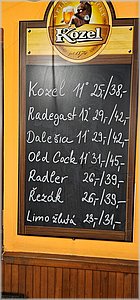 Kozel
Kozel 11° 25,-/38,-
Radegast 12° 29,-/42,-
Dalešia 12° 29,-/42,-
Old Cock 11° 31,-/45,-
Radler 26,-/39,-
Řezák 26,-/39,-
Limo žlutá 23,-/31,-